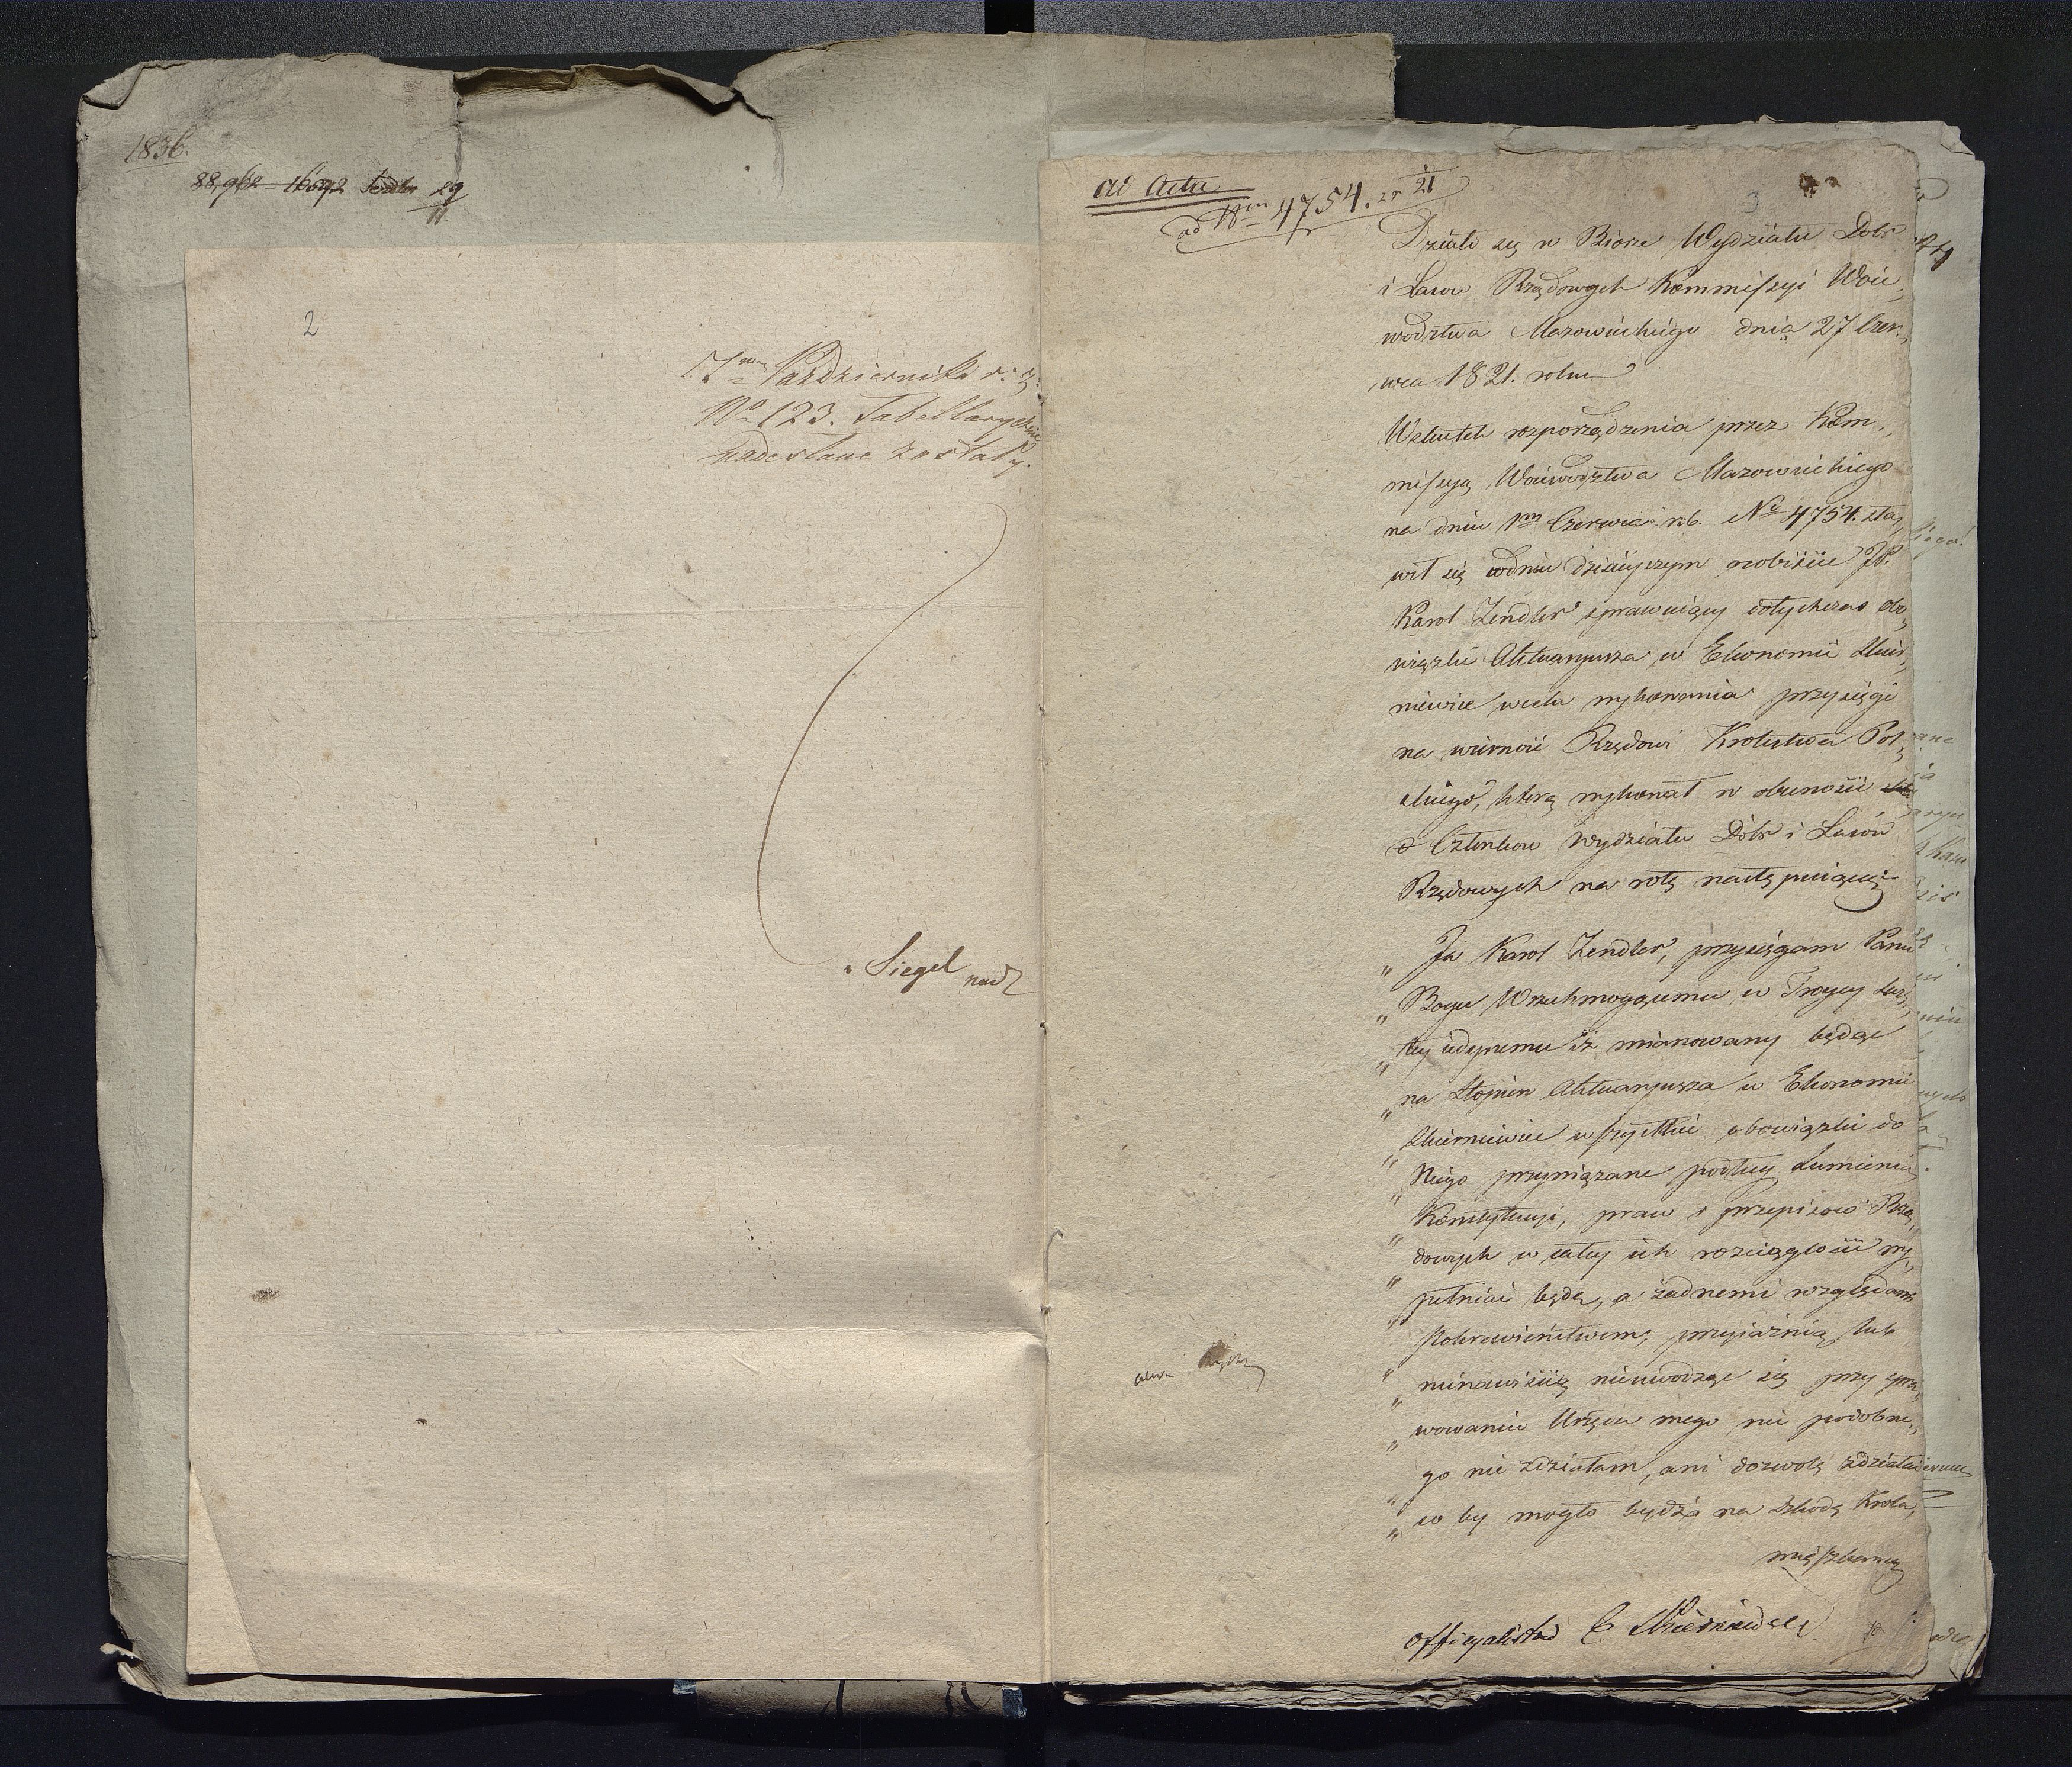 1836.
88,962 16592 29
11
2
17ma Października r: z:
No 123. Tabellarycznie
nadesłane zostały.
Siegel
ad Acta
ad Nrm 4754. 21
3
Działo się w Biorze Wydziału Dobr
i Lasow Rządowych Kommissyi Woie„
wodztwa Mazowieckiego dnia 27 Czer„
wca 1821. roku
Wskutek rozporządzenia przez Kom„
missyą Woiewodztwa Mazowieckiego
na dniu 1m Czerwca r.b. No 4754. sta„
wił się wdniu dzisieyszym osobiście JP.
Karol Zendler sprawuiący dotychczas obo„
wiązki Aktuaryusza w Ekonomii Skier„
niewice wcelu wykonania przysięgi
na wierność Rządowi Krolestwa Pol„
skiego, którą wykonał w obecności
Członkow Wydziału Dóbr i Lasów
Rządowych na rotę następuiącą:
„ Ja Karol Zendler, przysięgam Panu
„ Bogu Wszechmogącemu w Troycy Świę„
„ tey iedynemu iż mianowany będąc
„ na Stopien Aktuaryusza w Ekonomii
„ Skierniewice wszystkie obowiązki do
„ Niego przywiązane podług Sumienia,
„ Konstytucyi, praw i przepisow Rzą„
„ dowych w całey ich rozciągłości wy„
„ pełniać będę, a żadnemi względami
„ pokrewieństwem, przyiaźnią lub
„ nienawiścią nieuwodząc się przy spra„
„ wowaniu Urzędu mego nic podobne„
„ go nie zdziałam, ani dozwolę zdziałać
„ co by mogło bydź na Szkodę Krola,
mięszkancy
Officyalistów E. Skierniewice